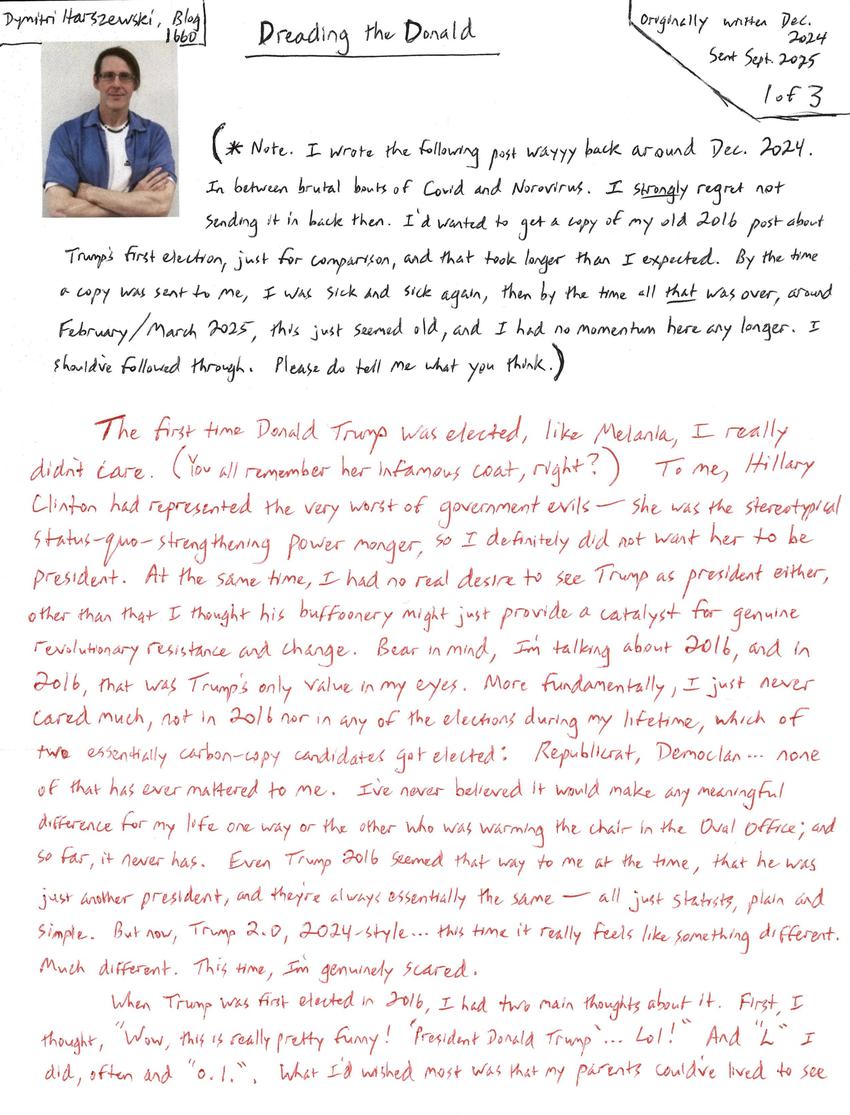 Dymitri Harszewski, Blog
1660
Dreading the Donald
Originally written Dec.
2024
Sent Sept. 2025
1 of 3
(* Note. I wrote the following post wayyy back around Dec. 2024.
In between brutal bouts of Covid and Norovirus. I strongly regret not
sending it in back then. I'd wanted to get a copy of my old 2016 post about
Trump's first election, just for comparison, and that took longer than I expected. By the time
a copy was sent to me, I was sick and sick again, then by the time all that was over, around
February/March 2025, this just seemed old, and I had no momentum here any longer. I
should've followed through. Please do tell me what you think.)
The first time Donald Trump was elected, like Melania, I really
didn't care. (You all remember her infamous coat, right?) To me, Hillary
Clinton had represented the very worst of government evils — she was the stereotypical
status-quo-strengthening power monger, so I definitely did not want her to be
president. At the same time, I had no real desire to see Trump as president either,
other than that I thought his buffoonery might just provide a catalyst for genuine
revolutionary resistance and change. Bear in mind, I'm talking about 2016, and in
2016, that was Trump's only value in my eyes. More fundamentally, I just never
cared much, not in 2016 nor in any of the elections during my lifetime, which of
two essentially carbon-copy candidates got elected: Republicrat, Democlan... none
of that has ever mattered to me. I've never believed it would make any meaningful
difference for my life one way or the other who was warming the chair in the Oval Office; and
so far, it never has. Even Trump 2016 seemed that way to me at the time, that he was
just another president, and they're always essentially the same — all just statists, plain and
simple. But now, Trump 2.0, 2024-style... this time it really feels like something different.
Much different. This time, I'm genuinely scared.
When Trump was first elected in 2016, I had two main thoughts about it. First, I
thought, "Wow, this is really pretty funny! 'President Donald Trump'... Lol!" And "L" I
did, often and "o.l.". What I'd wished most was that my parents could've lived to see